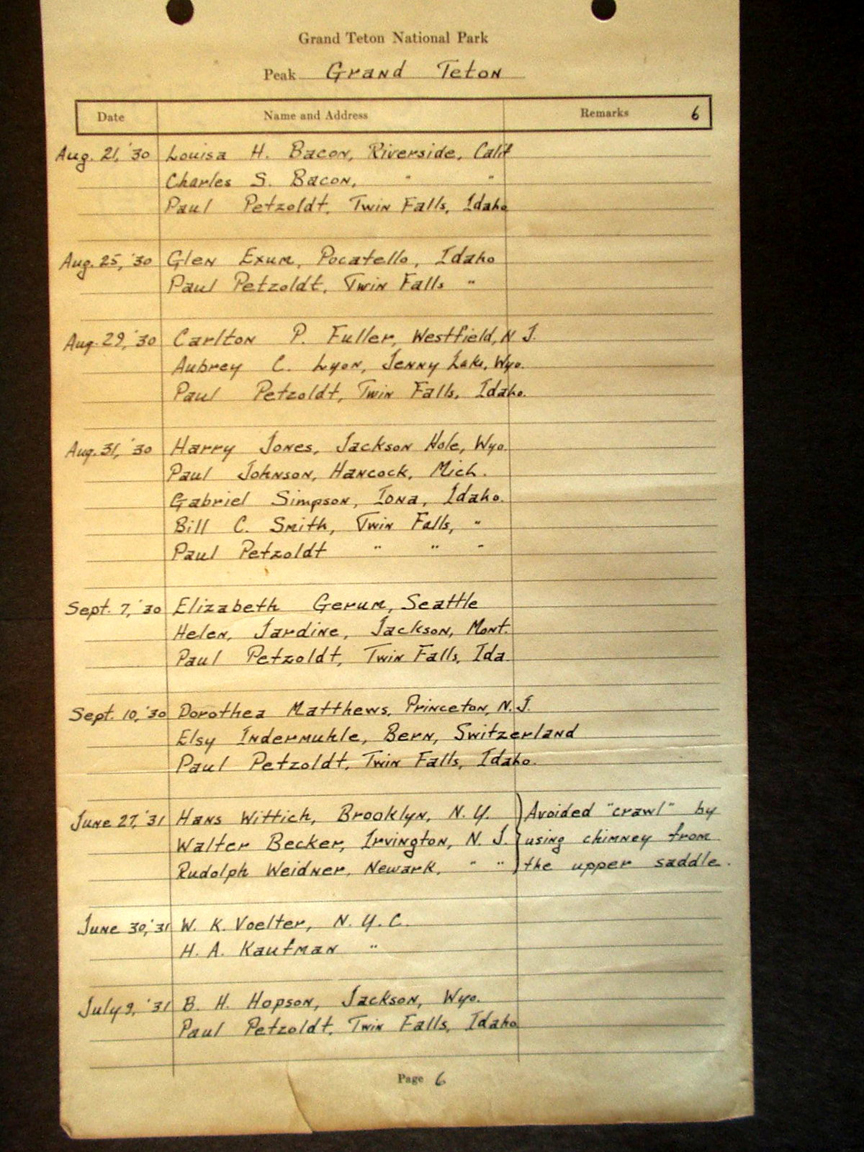 Grand Teton National Park
Peak Grand Teton
Date Name and Address Remarks 6
Aug. 21, '30 Louisa H. Bacon, Riverside, Calif
Charles S. Bacon, " "
Paul Petzoldt, Twin Falls, Idaho
Aug. 25, '30 Glen Exum, Pocatello, Idaho
Paul Petzoldt, Twin Falls "
Aug. 29, '30 Carlton P. Fuller, Westfield, N. J.
Aubrey C. Lyon, Jenny Lake, Wyo.
Paul Petzoldt, Twin Falls, Idaho.
Aug. 31, '30 Harry Jones, Jackson Hole, Wyo.
Paul Johnson, Hancock, Mich.
Gabriel Simpson, Iona, Idaho.
Bill C. Smith, Twin Falls, "
Paul Petzoldt " " "
Sept. 7, '30 Elizabeth Gerum, Seattle
Helen, Jardine, Jackson, Mont.
Paul Petzoldt, Twin Falls, Ida.
Sept. 10, '30 Dorothea Matthews, Princeton, N. J.
Elsy Indermuhle, Bern, Switzerland
Paul Petzoldt, Twin Falls, Idaho.
June 27, '31 Hans Wittich, Brooklyn, N. Y. } Avoided "crawl" by
Walter Becker, Irvington, N. J. } using chimney from
Rudolph Weidner, Newark, " " } the upper saddle.
June 30, '31 W. K. Voelter, N. Y. C.
H. A. Kaufman "
July 9, '31 B. H. Hopson, Jackson, Wyo.
Paul Petzoldt, Twin Falls, Idaho
Page 6